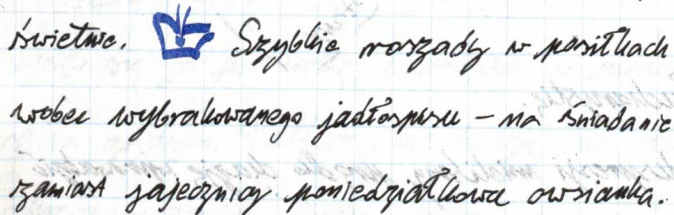 świetne. Szybkie roszady w posiłkach
wobec wybrakowanego jadłospisu – na śniadanie
zamiast jajecznicy poniedziałkowa owsianka.